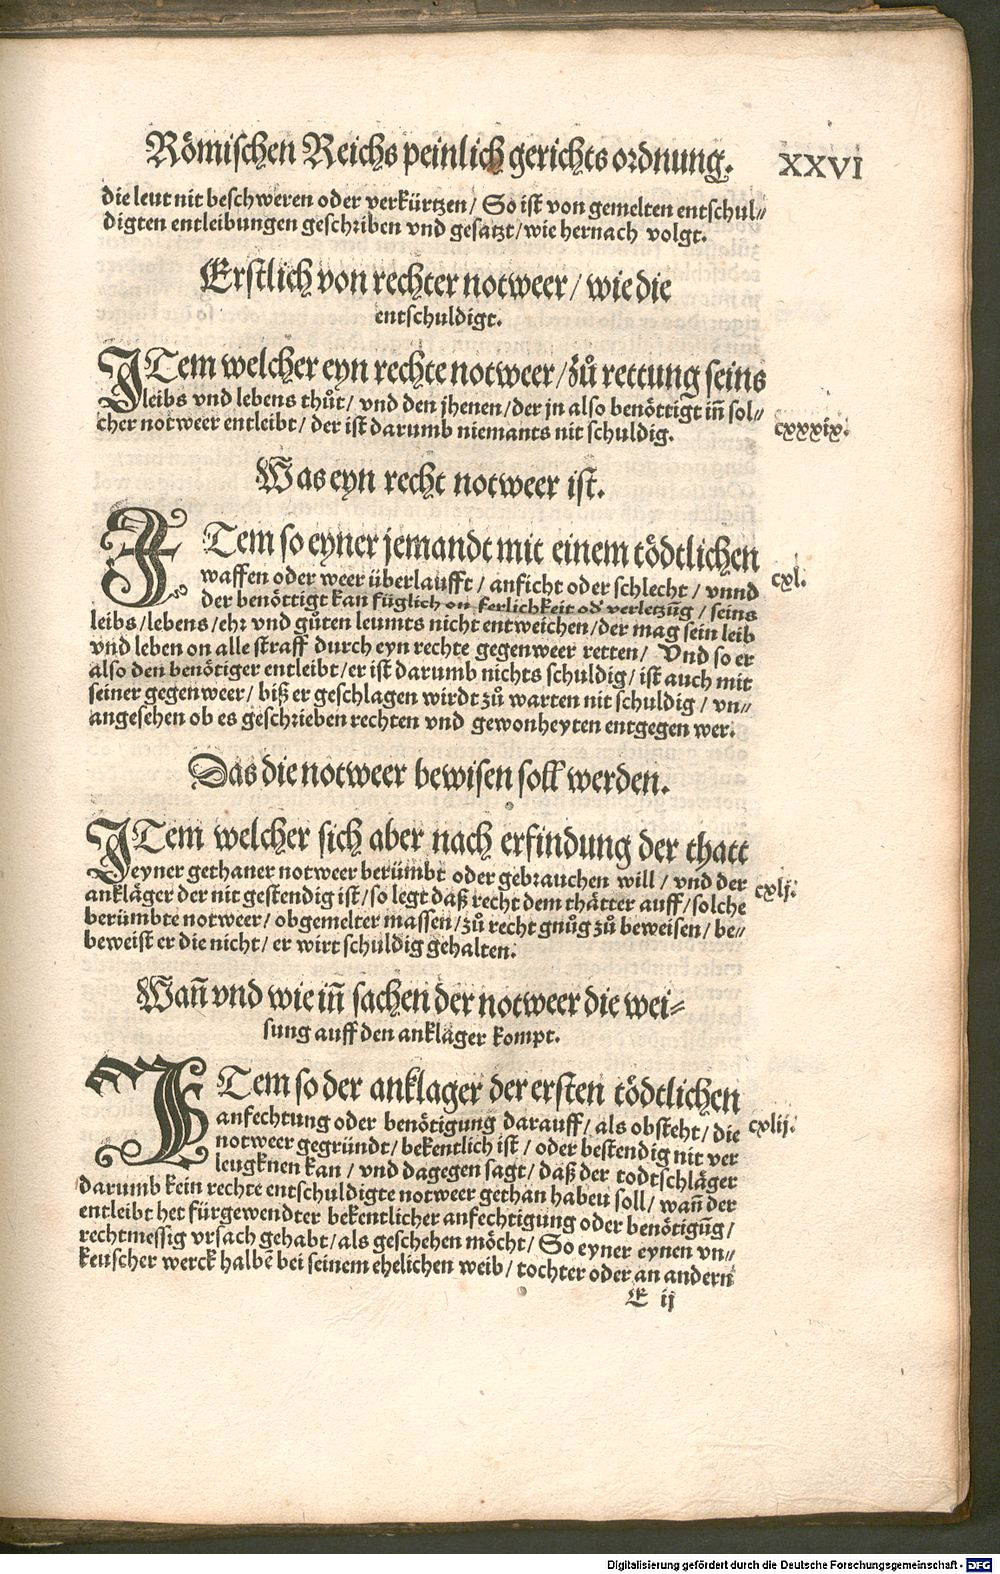 Römischen Reichs peinlich gerichts ordnung. XXVI
die leut nit beschweren oder verkürtzen / So ist von gemelten entschul⸗
digten entleibungen geschriben vnd gesatzt / wie hernach volgt.
Erstlich von rechter notweer / wie die
entschuldigt.
ITem welcher eyn rechte notweer / zů rettung seins
leibs vnd lebens thůt / vnd den jhenen / der jn also benöttigt iñ sol⸗
cher notweer entleibt / der ist darumb niemants nit schuldig.
cxxxix.
Was eyn recht notweer ist.
ITem so eyner jemandt mit einem tödtlichen
waffen oder weer überlaufft / anficht oder schlecht / vnnd
cxl.
der benöttigt kan füglich on ferlichkeit oď verletzūg / seins
leibs / lebens / ehr vnd gůten leumts nicht entweichen / der mag sein leib
vnd leben on alle straff durch eyn rechte gegenweer retten / Vnd so er
also den benötiger entleibt / er ist darumb nichts schuldig / ist auch mit
seiner gegenweer / biß er geschlagen wirdt zů warten nit schuldig / vn⸗
angesehen ob es geschrieben rechten vnd gewonheyten entgegen wer.
Das die notweer bewisen soll werden.
ITem welcher sich aber nach erfindung der thatt
eyner gethaner notweer berümbt oder gebrauchen will / vnd der
ankläger der nit gestendig ist / so legt daß recht dem thätter auff / solche
cxlj.
berümbte notweer / obgemelter massen / zů recht gnůg zů beweisen / be⸗
beweist er die nicht / er wirt schuldig gehalten.
Wañ vnd wie iñ sachen der notweer die wei⸗
sung auff den anklager kompt.
ITem so der anklager der ersten tödtlichen
anfechtung oder benötigung darauff / als obsteht / die
cxlij.
notweer gegründt / bekentlich ist / oder bestendig nit ver
leugknen kan / vnd dagegen sagt / daß der todtschläger
darumb kein rechte entschuldigte notweer gethan haben soll / wañ der
entleibt het fürgewendter bekentlicher anfechtigung oder benötigūg /
rechtmessig vrsach gehabt / als geschehen möcht / So eyner eynen vn⸗
keuscher werck halbē bei seinem ehelichen weib / tochter oder an andern
E ij
Digitalisierung gefördert durch die Deutsche Forschungsgemeinschaft - DFG